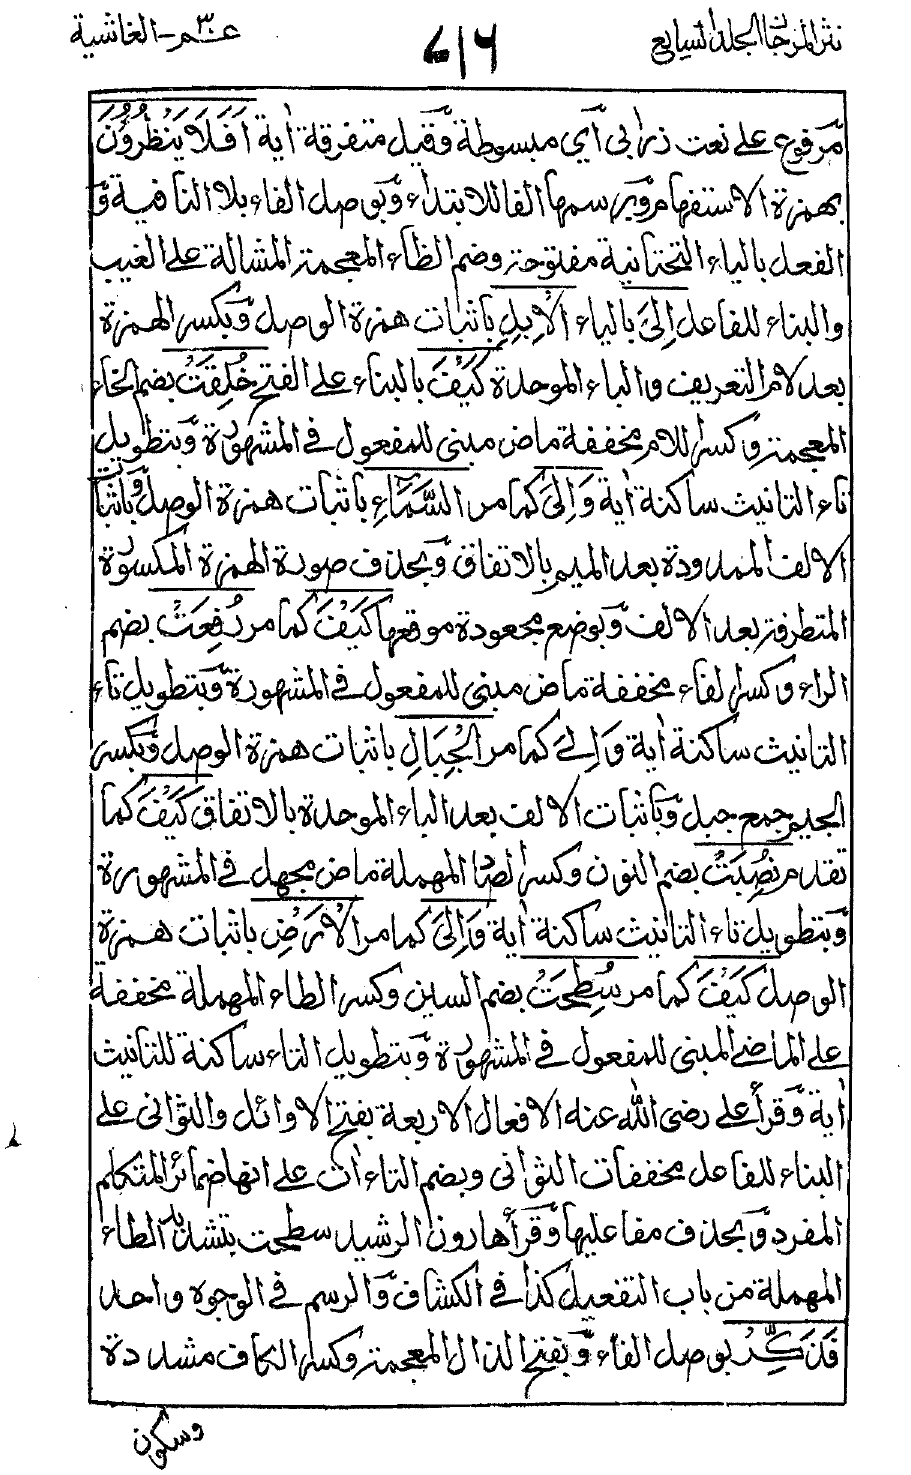 نثر المرجان الجلد السابع
٧١٦
عـم - الغاشية
مرفوع على نعت زرابى اى مبسوطة وقيل متفرقة اية اَفَلَا يَنْظُرُوْنَ
بهمزة الاستفهام وبرسمها الفا للابتداء وبوصل الفاء بلا النافية و
الفعل بالياء التحتانية مفتوحة وضم الظاء المعجمة المشالة على الغيب
والبناء للفاعل اِلَى بالياء الْاِبِلِ باثبات همزة الوصل وبكسر الهمزة
بعد لام التعريف والباء الموحدة كَيْفَ بالبناء على الفتح خُلِقَتْ بضم الخاء
المعجمة وكسر اللام مخففة ماض مبنى للمفعول فى المشهورة وبتطويل
تاء التانيث ساكنة اية وَاِلَى كما مر السَّمَآءِ باثبات همزة الوصل وباثبات
الالف الممدودة بعد الميم بالاتفاق وبحذف صورة الهمزة المكسورة
المتطرفة بعد الالف وبوضع مجعودة موقعها كَيْفَ كما مر رُفِعَتْ بضم
الراء وكسر الفاء مخففة ماض مبنى للمفعول فى المشهورة وبتطويل تاء
التانيث ساكنة اية وَاِلَى كما مر الْجِبَالِ باثبات همزة الوصل وبكسر
الجيم جمع جبل وباثبات الالف بعد الباء الموحدة بالاتفاق كَيْفَ كما
تقدم نُصِبَتْ بضم النون وكسر الصاد المهملة ماض مجهل فى المشهورة
وبتطويل تاء التانيث ساكنة اية وَاِلَى كما مر الْاَرْضِ باثبات همزة
الوصل كَيْفَ كما مر سُطِحَتْ بضم السين وكسر الطاء المهملة مخففة
على الماضى المبنى للمفعول فى المشهورة وبتطويل التاء ساكنة للتانيث
اية وقرأ على رضى الله عنه الافعال الاربعة بفتح الاوائل والثوانى على
البناء للفاعل مخففات الثوانى وبضم التاءات على انها ضمائر المتكلم
المفرد وبحذف مفاعليها وقرأ هارون الرشيد سطحت بتشديد الطاء
المهملة من باب التفعيل كذا فى الكشاف والرسم فى الوجوه واحد
فَذَكِّرْ بوصل الفاء وبفتح الذال المعجمة وكسر الكاف مشددة
وسكون